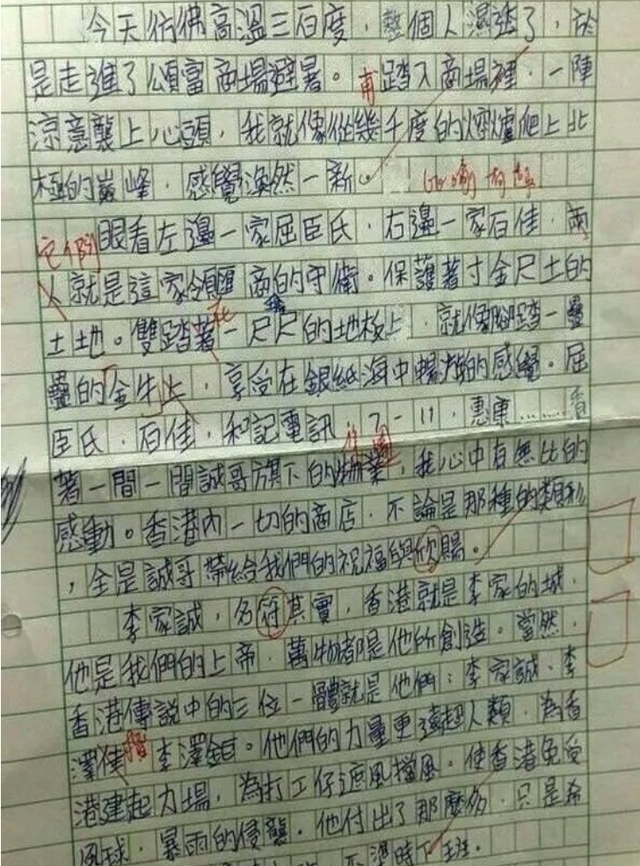 今天仿佛高溫三百度，整個人濕透了，於
是走進了頌富商場避暑。甫踏入商場裡，一陣
涼意襲上心頭，我就像從幾千度的熔爐爬上北
極的巔峰，感覺渙然一新。
眼看左邊一家屈臣氏，右邊一家百佳，兩
人就是這家領匯商的守衛。保護著寸金尺土的
土地。雙踏著一尺尺的地板上，就像腳踏一疊
疊的金牛上，享受在銀紙海中的感覺。屈
臣氏，百佳，和記電訊，7-11，惠康………看
著一間一間誠哥旗下的物業，我心中有無比的
感動。香港內一切的商店，不論是那種的類形
，全是誠哥帶給我們的祝福與欣賜。
李家誠，名符其實，香港就是李家的城，
他是我們的上帝，萬物都是他所創造。當然，
香港傳說中的三位一體就是他們：李家誠、李
澤楷、李澤鉅。他們的力量更遠超人類，為香
港建起力場，為打工仔遮風擋風。使香港免受
風球，暴雨的侵襲。他付出了那麼多，只是希
準時下班。